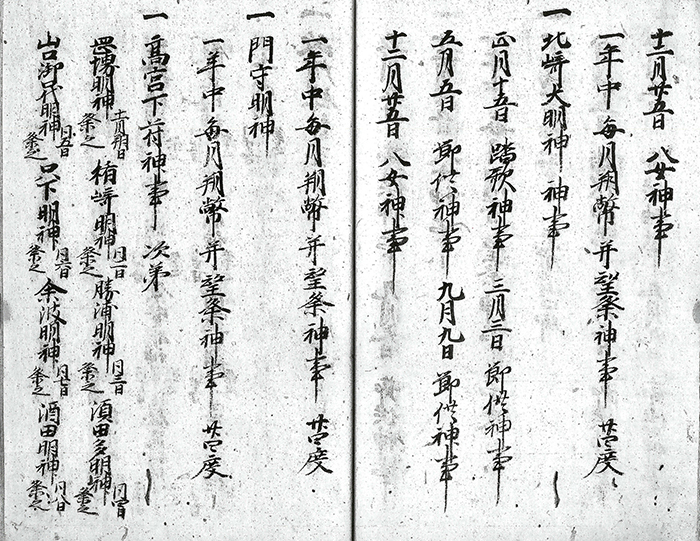 十二月廿五日 八女神事
一年中毎月朔幣并望祭神事 廿四度
一 北崎大明神 神事
正月十五日 踏歌神事 三月三日 節供神事
五月五日 節供神事 九月九日 節供神事
十二月廿五日 八女神事
一年中毎月朔幣并望祭神事 廿四度
一 門守明神
一年中毎月朔幣并望祭神事 廿四度
一 高宮下符神事 次第
明神 十一月朔日祭之 楯崎明神 同二日祭之 勝浦明神 同三日祭之 須田多明神 同四日祭之
山口 明神 同五日祭之 明神 同六日祭之 余波明神 同七日祭之 酒田明神 同八日祭之